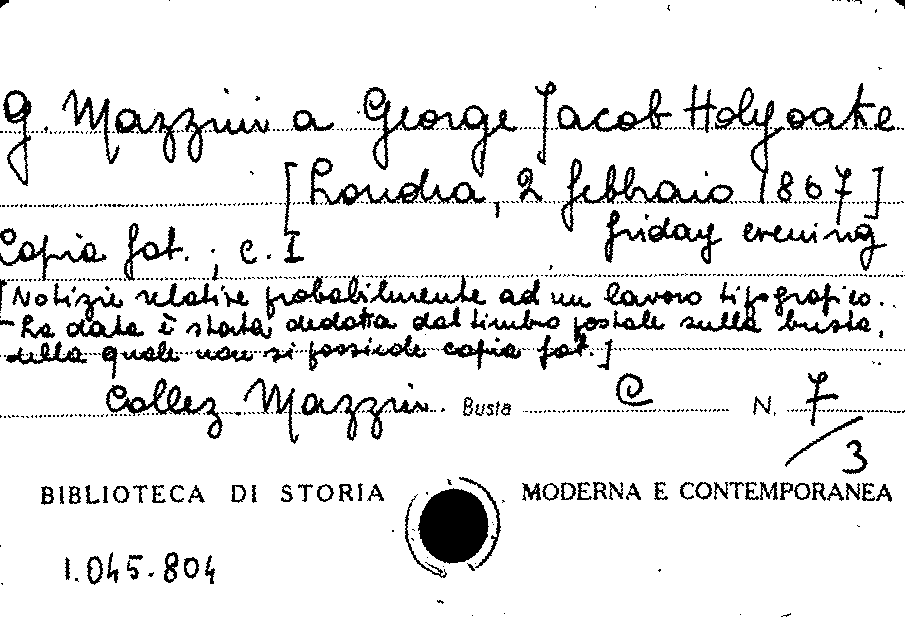 G. Mazzini a George Jacob Holyoake
[Londra, 2 febbraio 1867]
friday evening
Copia fot. ; c. I
[Notizie relative probabilmente ad un lavoro tipografico.
- La data è stata dedotta dal timbro postale sulla busta,
della quale non si possiede copia fot.]
Collez. Mazzini. Busta C N. 7/3
BIBLIOTECA DI STORIA MODERNA E CONTEMPORANEA
1.045.804